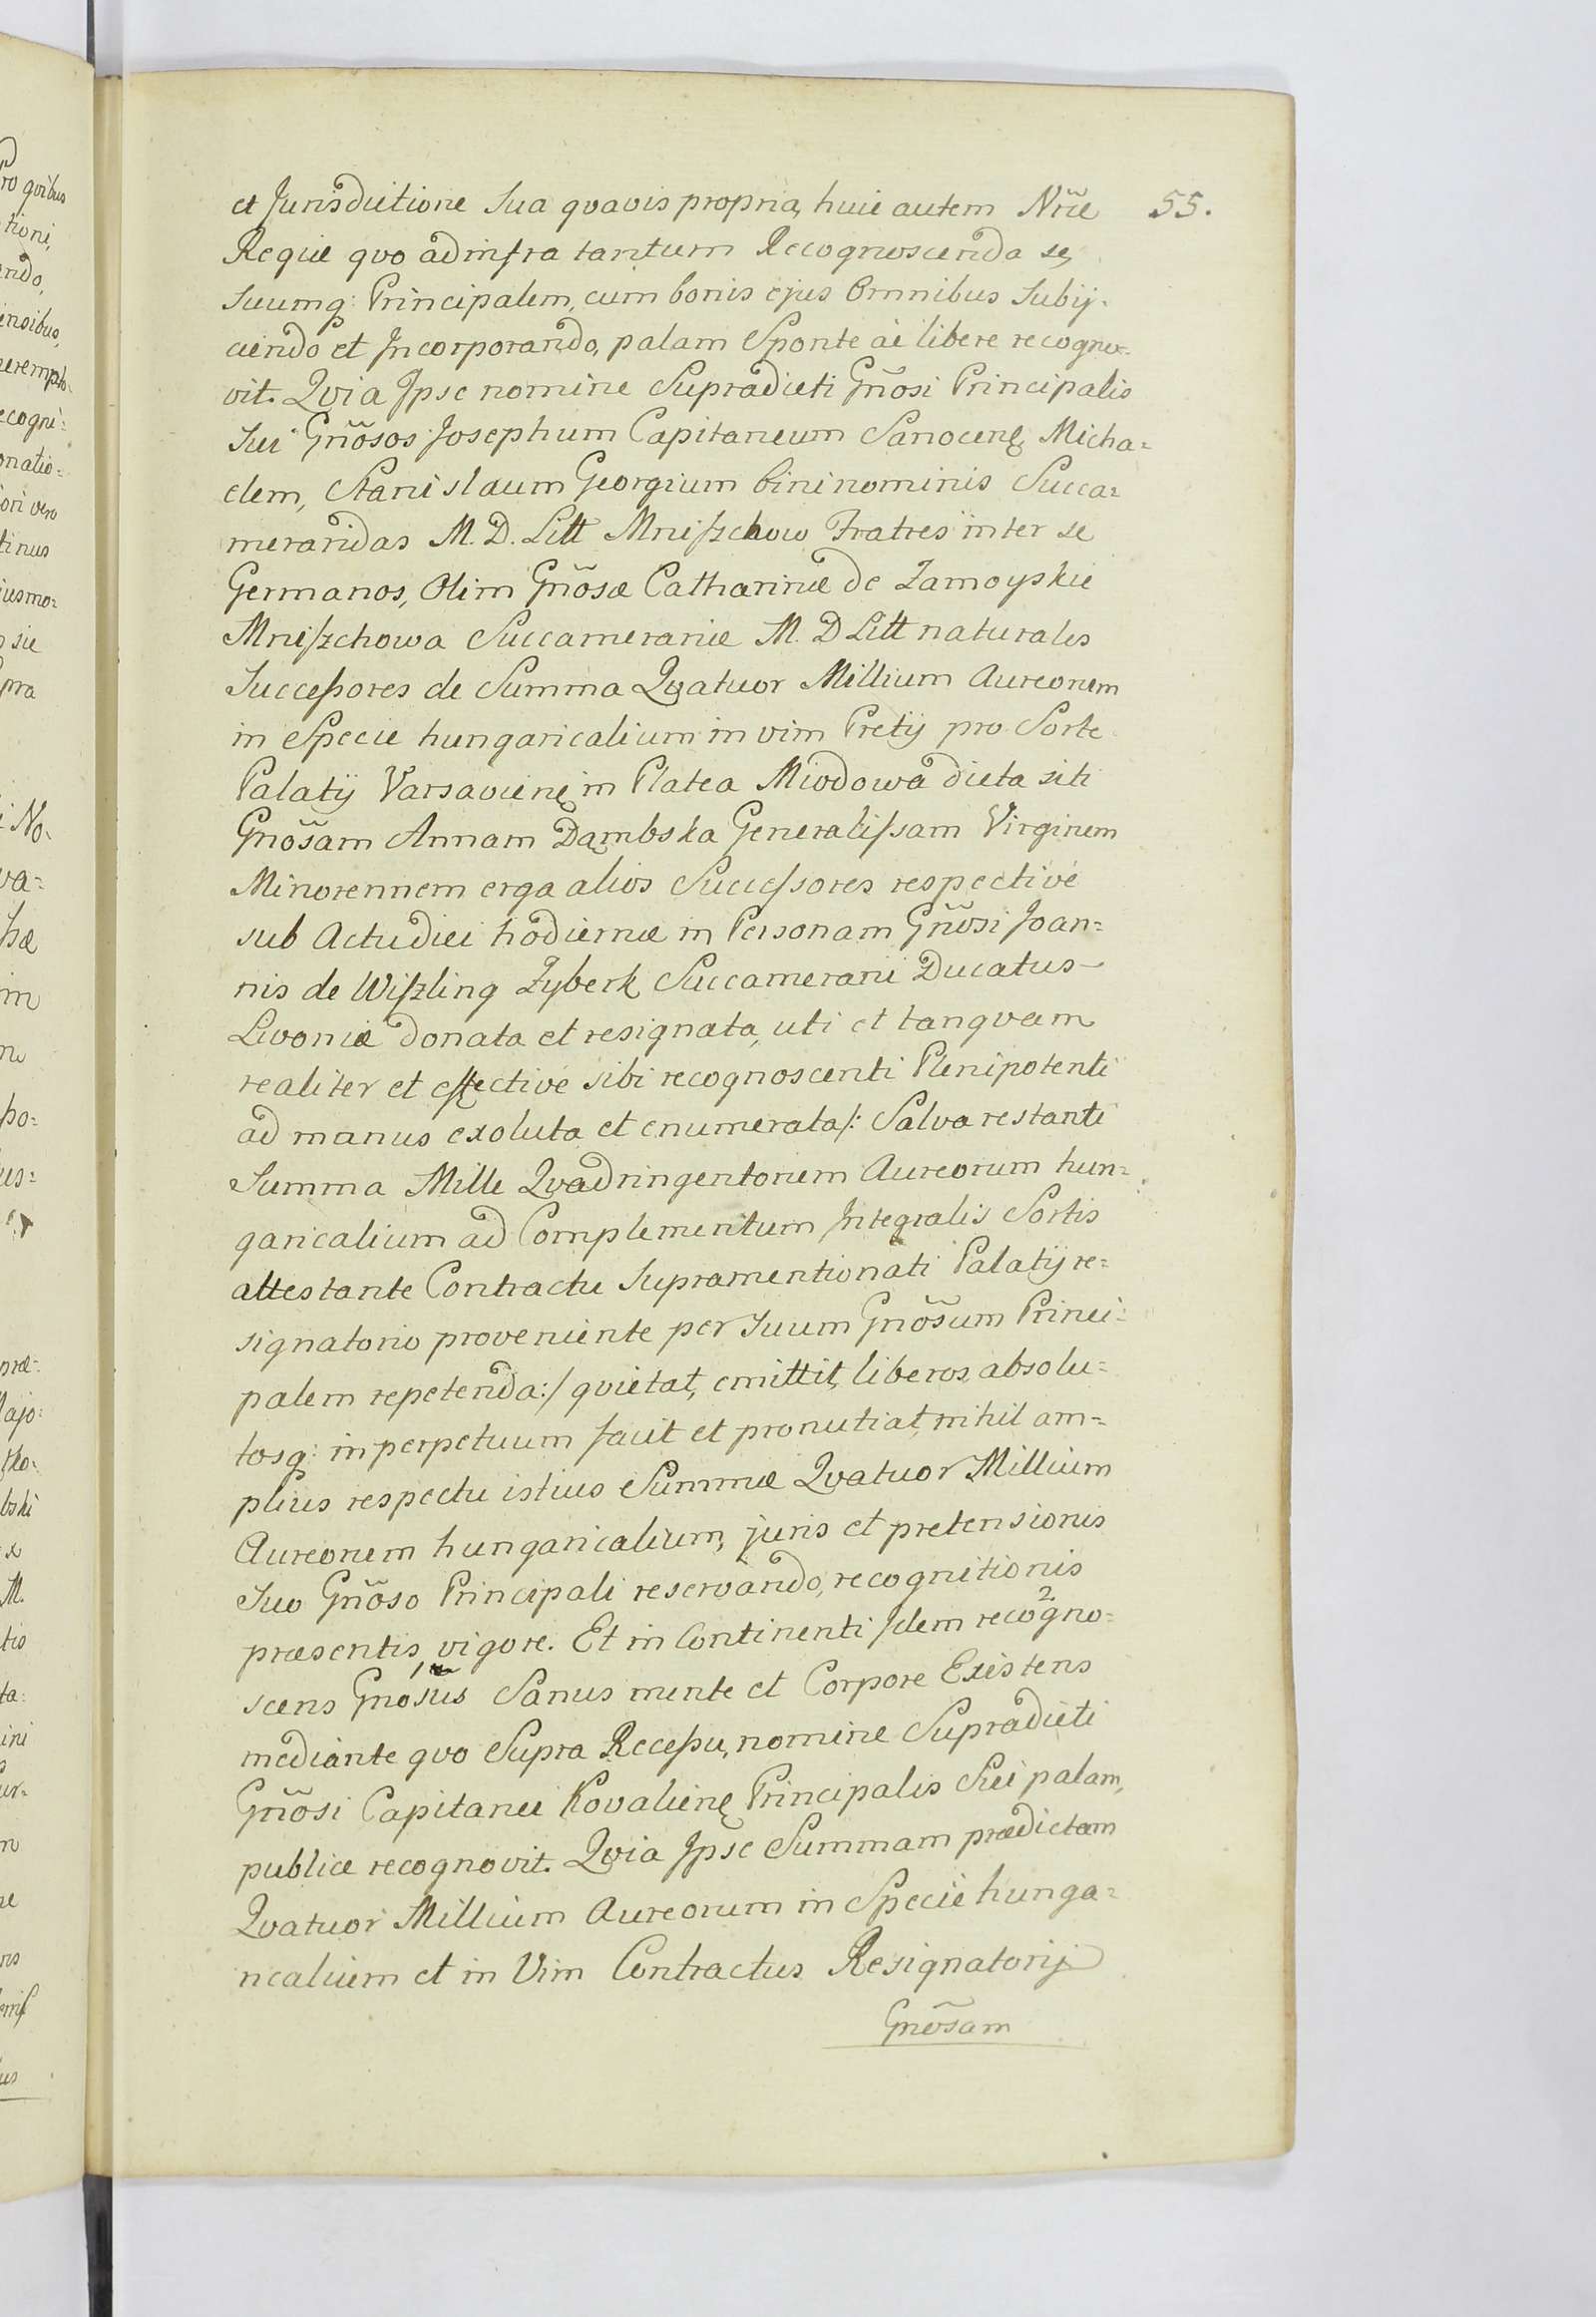 et Jurisdictione Sua qvavis propria, huic autem Nr̃æ 55.
Regiæ qvo ad infra tantum Recognoscenda se,
Suumq: Principalem, cum bonis ejus Omnibus Subij-
ciendo et Jncorporando, palam Sponte ac libere recogno-
vit. Qvia Jpse nomine Supradicti Gñosi Principalis
Sui Gñosos Josephum Capitaneum Sanocenę Micha=
elem, Stanislaum Georgium bini nominis Succa=
merandas M. D. Litt Mniszchow Fratres inter se
Germanos, Olim Gñosæ Catharinæ de Zamoyskie
Mniszchowa Succamerariæ M. D Litt naturales
Successores de Summa Qvatuor Millium Aureorum
in Specie hungaricalium in vim Pretij pro Sorte
Palatij Varsavienę in Platea Miodowa dicta siti
Gnõsam Annam Dąmbska Generalissam Virginem
Minorennem erga alios Successores respectivé
sub Actu diei hodiernæ in Personam Gñosi Joan=
nis de Wiszling Zyberk Succamerarii Ducatus
Livoniæ donata et resignata, uti et tanqvam
realiter et effective sibi recognoscenti Plenipotenti
ad manus exoluta et enumerata /: Salva restanti
Summa Mille Qvadringentorum Aureorum hun=
garicalium ad Complementum Jntegralis Sortis
attestante Contractu Supramentionati Palatij re=
signatorio proveniente per Suum Gñosum Princi=
palem repetenda :/ qvietat, emittit, liberos, absolu=
tosq: in perpetuum facit et pronutiat, nihil am=
plius respectu istius Summæ Qvatuor Millium
Aureorum hungaricalium, juris et pretensionis
Suo Gñoso Principali reservando, recognitionis
præsentis vigore. Et in Continenti Jdem recogno=
scens Gnõsus Sanus mente et Corpore Existens
mediante qvo Supra Recessu, nomine Supradicti
Gñosi Capitanei Kovalienę Principalis Sui palam,
publice recognovit. Qvia Jpse Summam prædictam
Qvatuor Millium Aureorum in Specie hunga=
ricalium et in Vim Contractus Resignatorij
Gnõsam